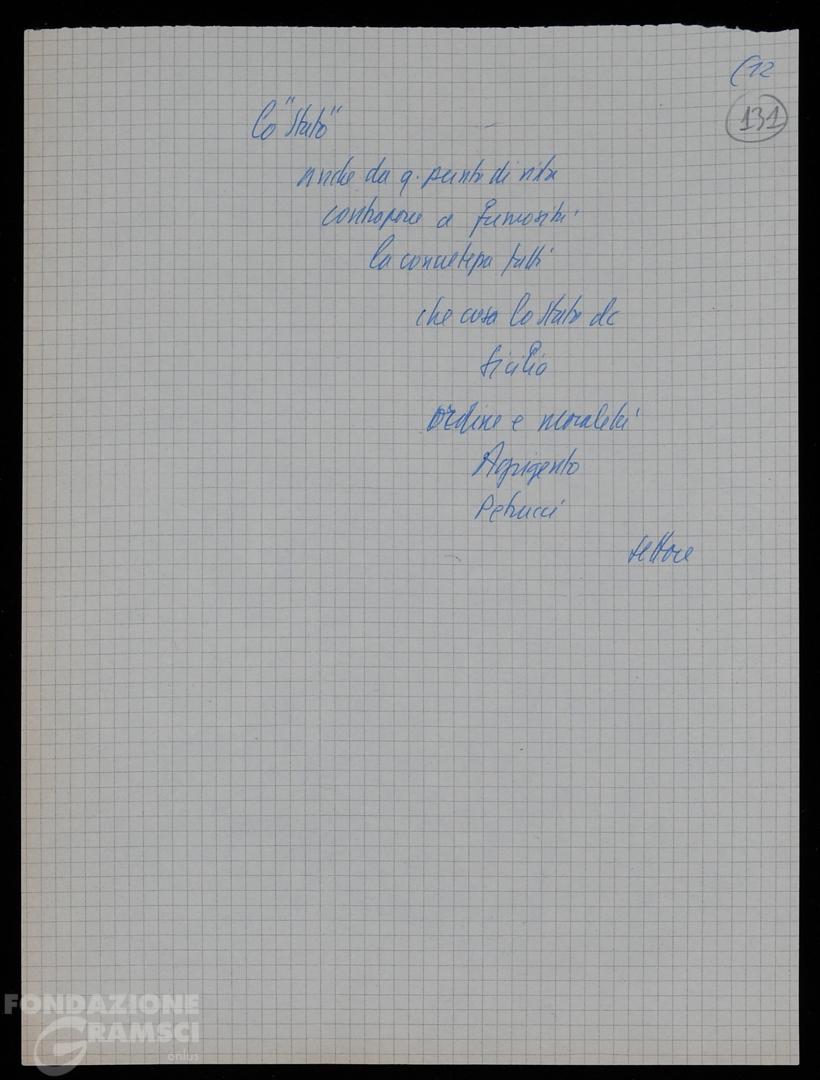 C12
131
Lo "Stato"
anche da q. punto di vista
contrapporre a fumosità
la concretezza fatti
che cosa lo Stato dc
Sicilia
ordine e moralità
Agrigento
Petrucci
settore
FONDAZIONE
GRAMSCI
onlus